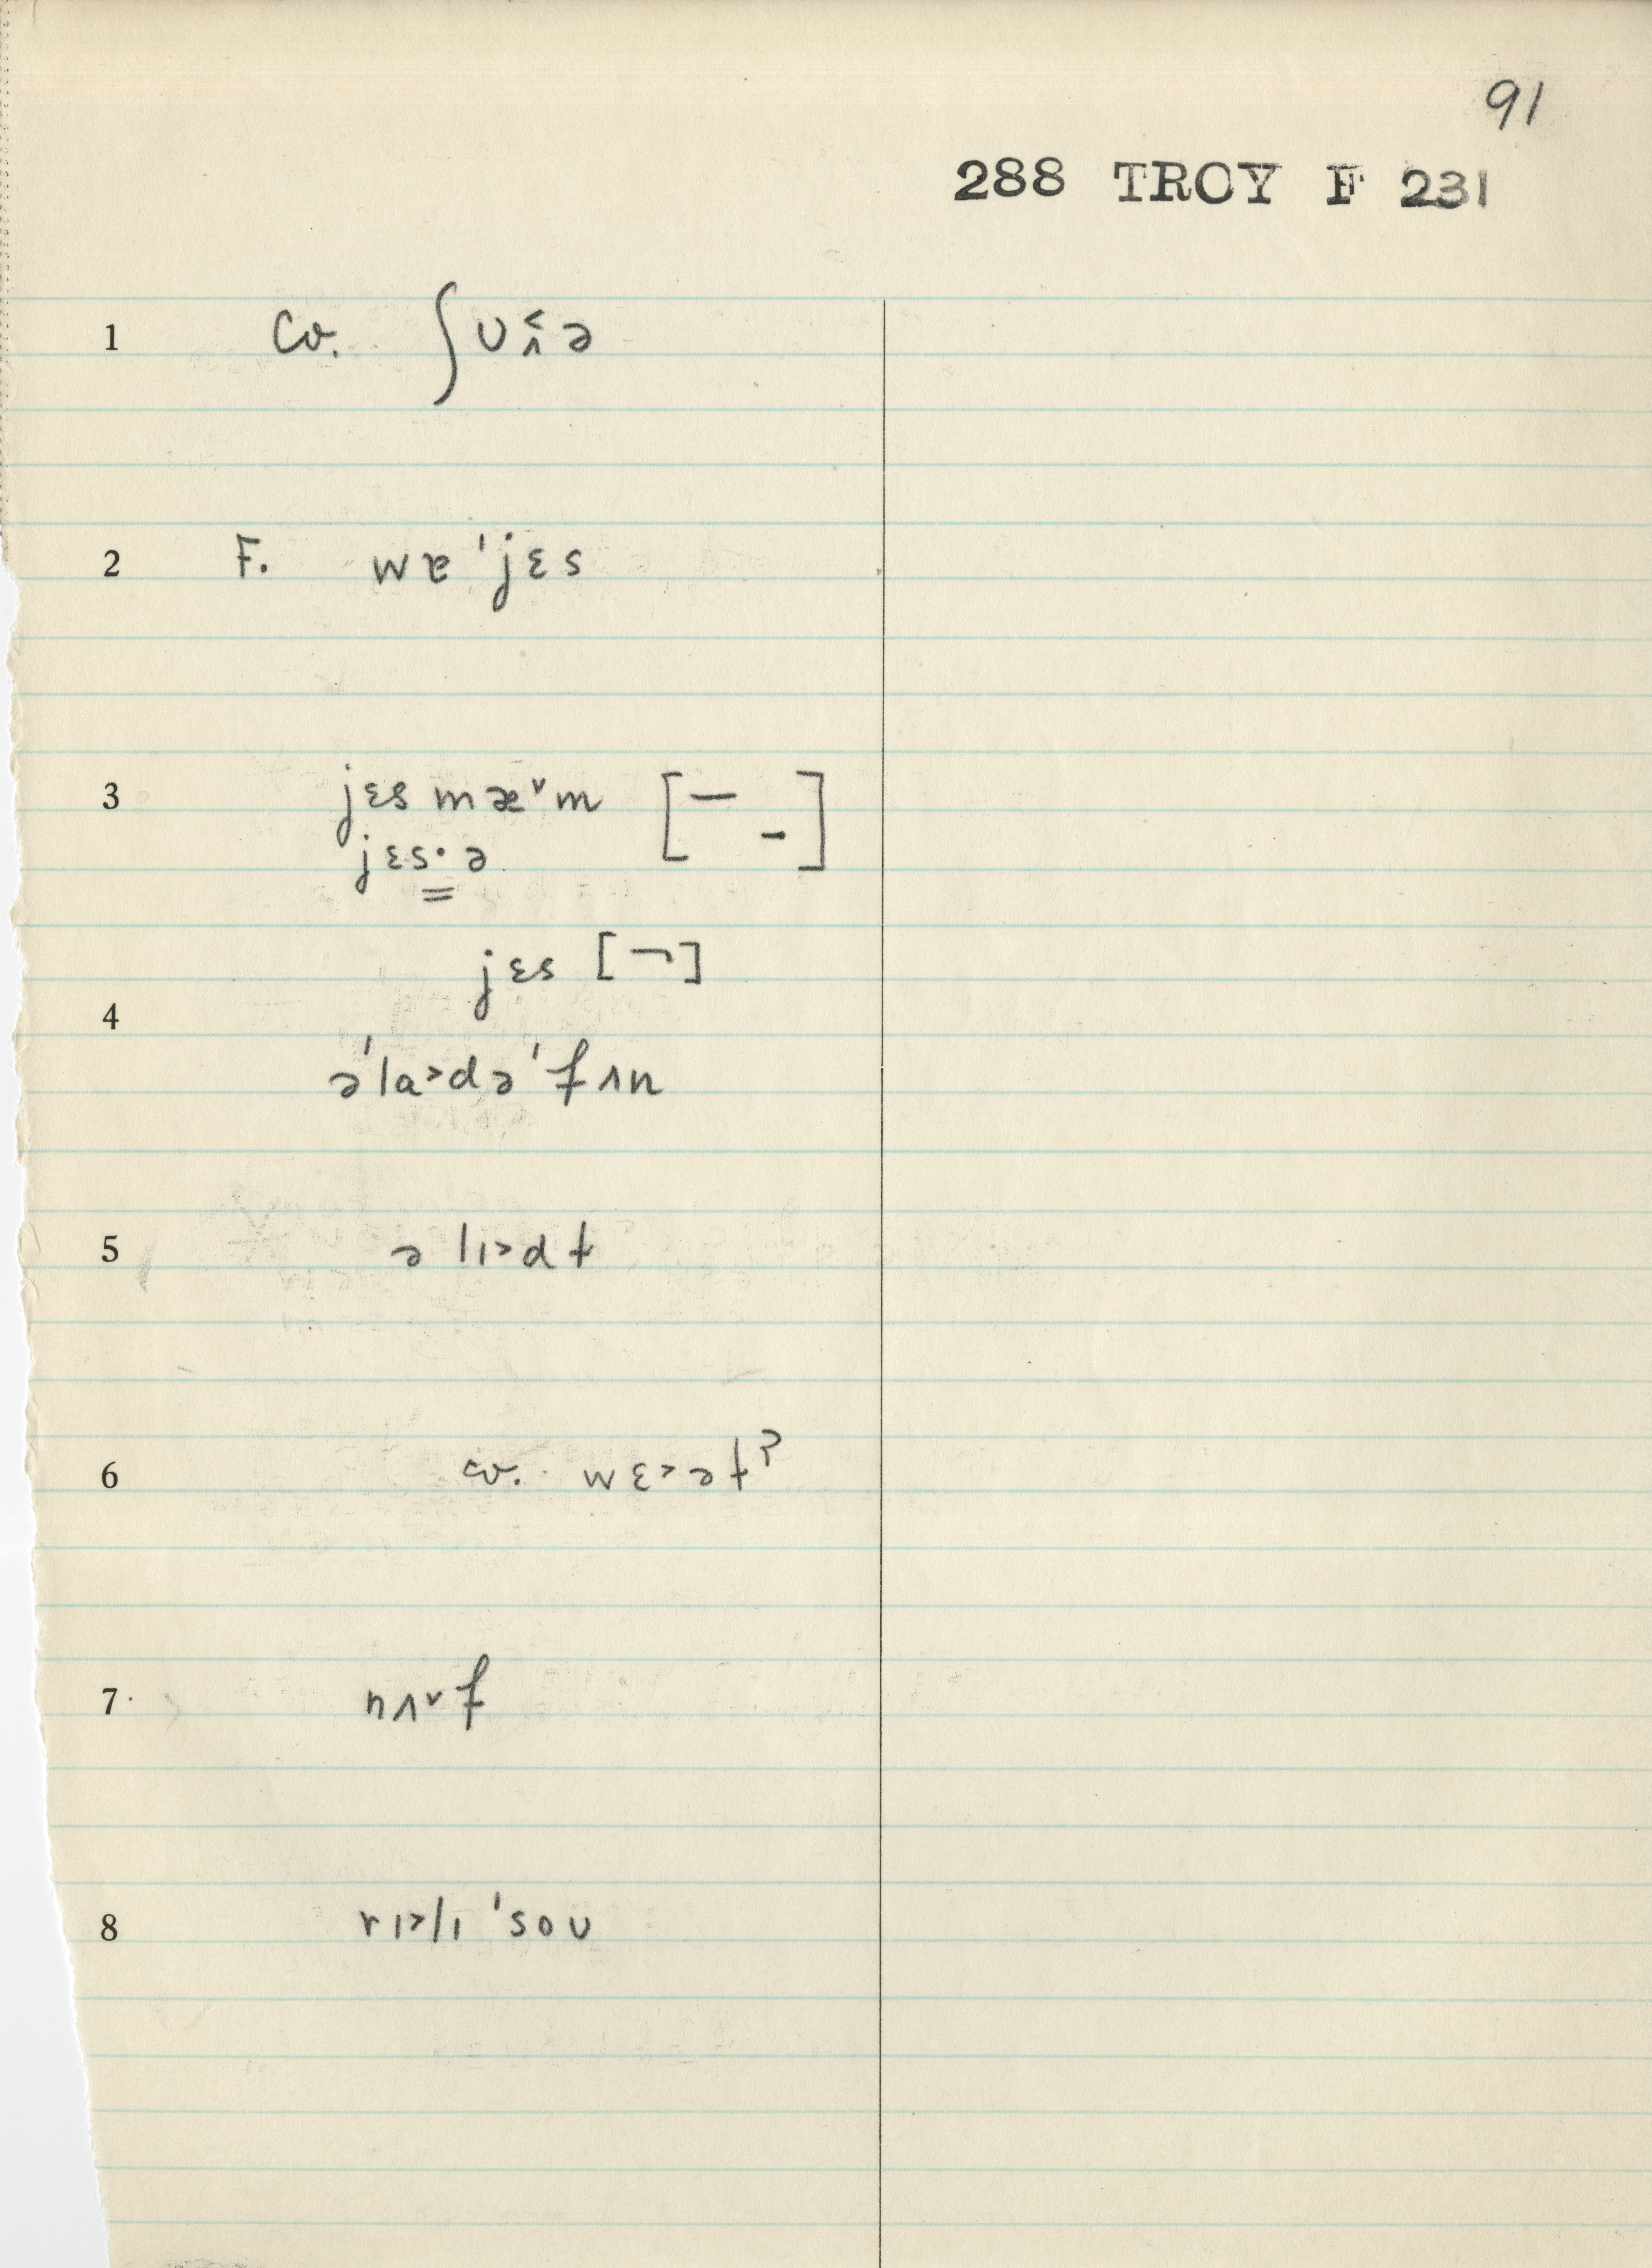 91
288 TROY F 231
1 cv. ʃʊʌ˂ə
2 F. wɐ'jɛs
3 jɛs mæ˅m [‾ -]
jɛs·ə
jɛs [¬]
4
ə'la˃də'fʌn
5 ə lɪ˃dt
6 cv. wɛ˃ət?
7 nʌ˅f
8 rɪ˃lɪ 'soʊ